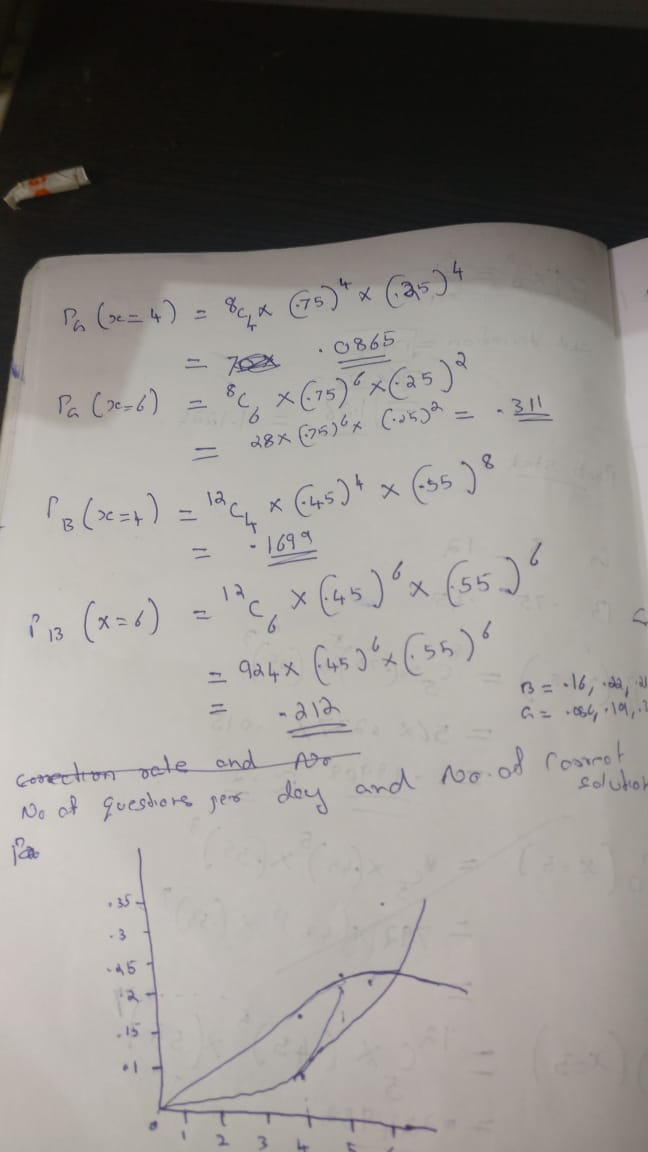 P_G (x=4) = ⁸C₄ × (.75)⁴ × (.25)⁴
= .0865
P_G (x=6) = ⁸C₆ × (.75)⁶ × (.25)²
= 28 × (.75)⁶ × (.25)² = .311
P_B (x=4) = ¹²C₄ × (.45)⁴ × (.55)⁸
= .1699
P_B (x=6) = ¹²C₆ × (.45)⁶ × (.55)⁶
= 924 × (.45)⁶ × (.55)⁶
= .212
B = .16, .22, .2
G = .086, .19,
Correction rate and No
No of questions per day and No. of correct
solution
.35
.3
.25
.2
.15
.1
0 1 2 3 4 5 6